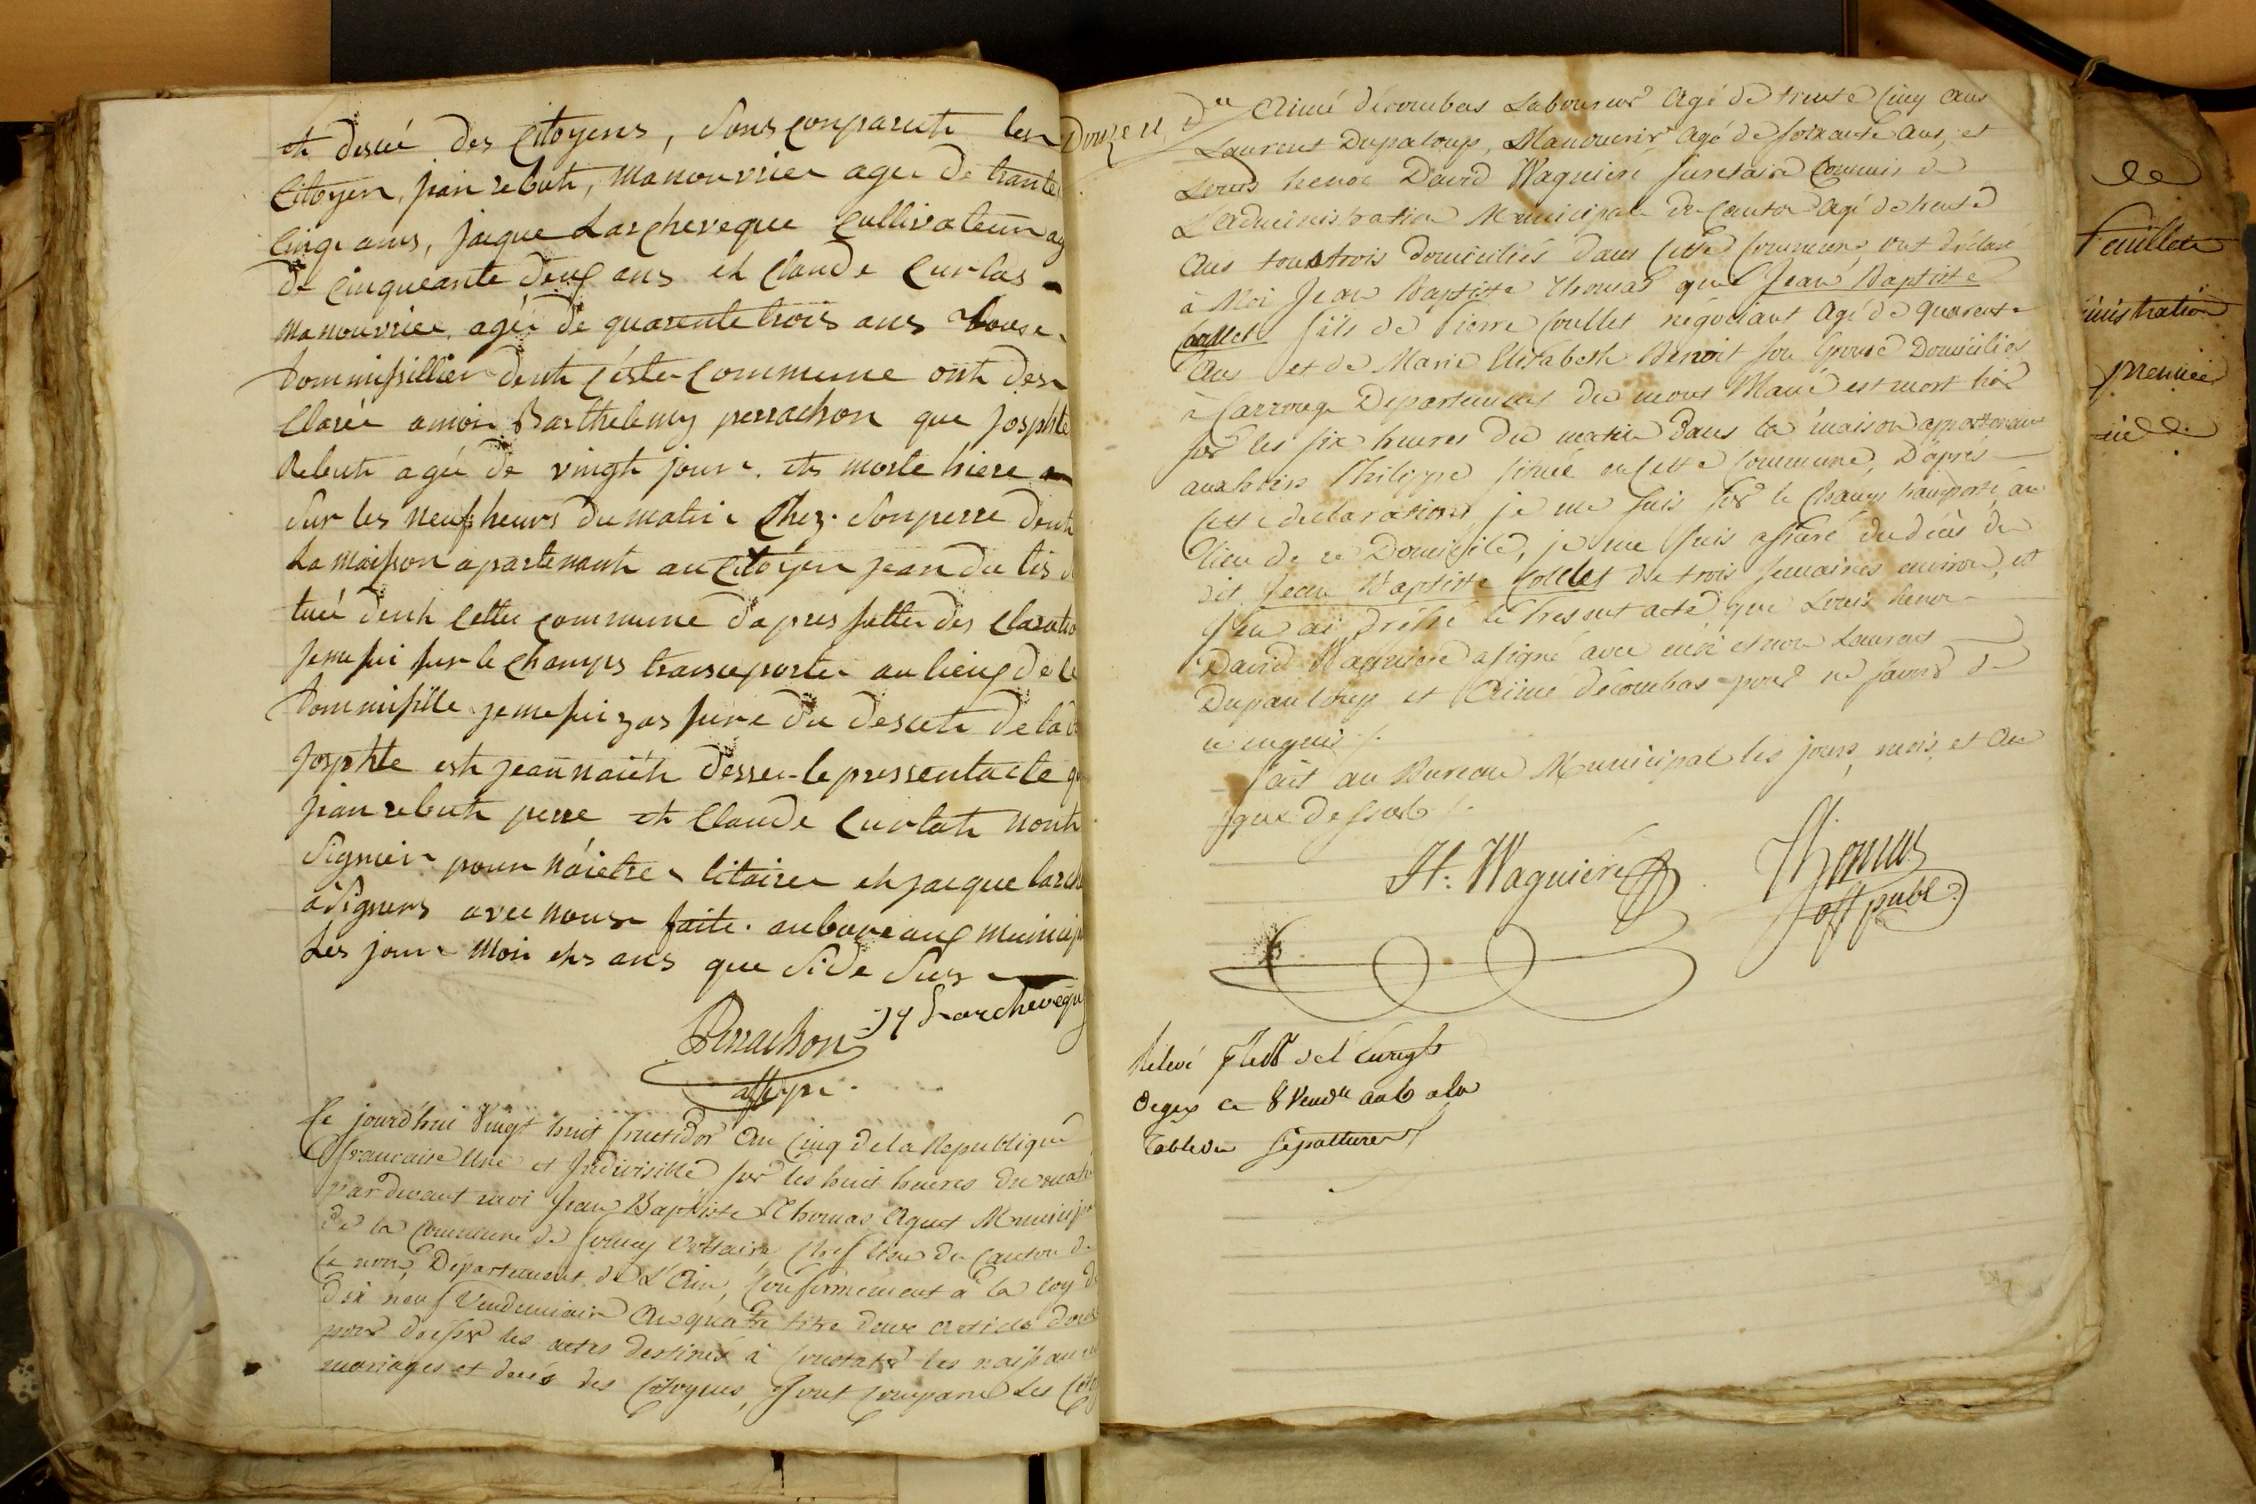 et descé des Citoyens, Sons conparuth les
Citoyen, jean rebuth, manouvrier agee de trante
Cinqe ans, jacque Larcheveque Cultivateur ag
de Cinqueante deux ans et Claude Curlas
manouvrier, agée de quarente trois ans touse
dommissillier denth céste Commeune onth des
Clarée amoin Barthelemy perrachon que josphte
Rebuth agée de vingh jour et morte hiere
Sur les neufsheurs du matin Chez Sonperre denth
La maisson apartenanth au Citoÿen jean du
tuée denth Cettee Commeune dapres settee des Claratio
jemesui sur le Champs transeportee au lieux de le
dommisille jemesuizas sure du desceth de la
josphte esth jeannaiéth dessee le pressentacte q
jean rebuth perre eth Claude Curlath nonth
Signeir pour náietre litairee eh jacque larch
a Signers avec nouse faite aubureaux municip
Les jour Moi ehs ans que Side Sus
Perrachon
J Larcheveque
Ce jourd'hui Vingt huit fructidor an Cinq de la Republique
francaise Une et Indivisible, sur les huit heures du mati
pardevant moi Jean Baptiste Thomas Agent Municipa
de la Commune de fernay Voltaire, Chef lieu du Canton de
ce nom, Département de L'Ain, Conformement à la loy d
dix neuf Vendemiaire An quatre titre deux article
pour dresser les actes destinés à constater les naissan
mariages et décès des Citoyens, Sont comparu Les Cito
Aimé décombas Laboureur Agé de trente Cinq ans
Laurent Dupaloup, Manouvrier Agé de soixante ans, et
Louis henri David Wagnière Secretaire Commis de
L'Administration Municipale du Canton Agé de trente
Ans tous trois domiciliés dans Cette Commune, ont déclaré
à Moi Jean Baptiste Thomas que Jean Baptiste
Coullet fils de Pierre Coullet négociant Agé de quarente
Ans et de Marie Elisabeth Benoit son Epouse Domiciliés
à Carrouge Departement du mont Blanc est mort hier
sur les six heures du matin dans la maison appartenan
aux hoirs Philippe située en Cette Commune, D'après
Cette declaration, je me suis sur le Champ transporté au
lieu de ce Domicile, je me suis assuré du décès du
dit Jean Baptiste Collet de trois semaines environ, et
j'en ai dréssé le Present acte que Louis henri
David Wagnière a signé avec moi et non Laurent
Dupauloup et Aimé décombas pour ne savoir de
ce enquis
fait au Bureau Municipal les jours, mois, et An
que dessus
H. Wagnière
Thomas
off publ
Relevé
Degex ce 8 Vend.re an 6 a la
Table des Sépultures
feuillets
inistration
premier